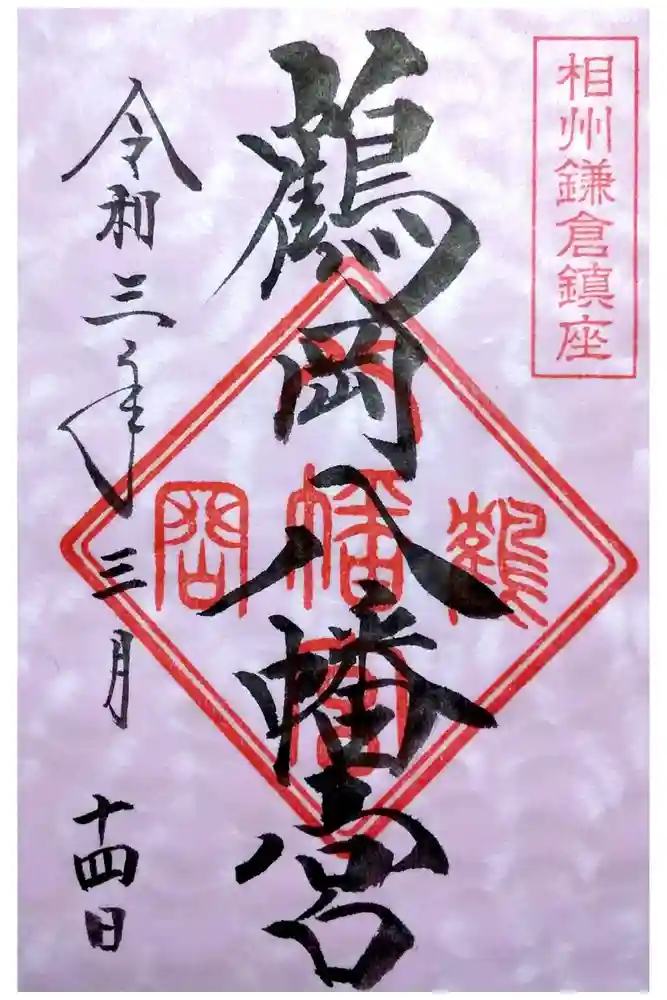 相州鎌倉鎮座
鶴岡八幡宮
令和三年三月十四日
鶴
幡
岡